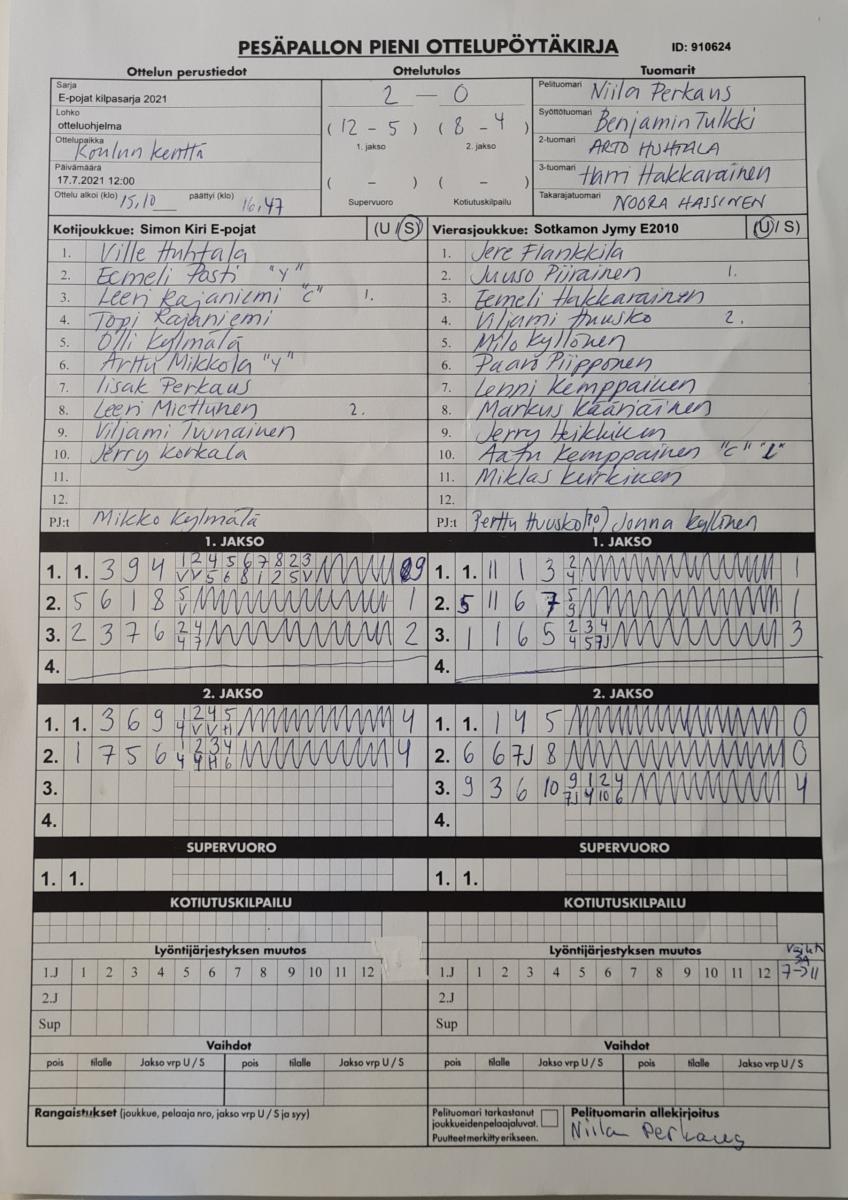 PESÄPALLON PIENI OTTELUPÖYTÄKIRJA ID: 910624
Ottelun perustiedot Ottelutulos Tuomarit
Sarja
E-pojat kilpasarja 2021
Lohko
otteluohjelma
Ottelupaikka Koulun kenttä
Päivämäärä
17.7.2021 12:00
Ottelu alkoi (klo) 15,10 päättyi (klo) 16,47
2 – 0
(12 - 5) (8 - 4)
1. jakso 2. jakso
( - ) ( - )
Supervuoro Kotiutuskilpailu
Pelituomari Niila Perkaus
Syöttötuomari Benjamin Tulkki
2-tuomari ARTO HUHTALA
3-tuomari Harri Hakkarainen
Takarajatuomari NOORA HASSINEN
Kotijoukkue: Simon Kiri E-pojat (U / S)
1. Ville Huhtala
2. Eemeli Pasti "Y"
3. Leeri Rajaniemi "C" 1.
4. Topi Rajaniemi
5. Olli Kylmälä
6. Arttu Mikkola "Y"
7. Iisak Perkaus
8. Leeri Miettunen 2.
9. Viljami Tuunainen
10. Jerry Korkala
11.
12.
PJ:t Mikko Kylmälä
Vierasjoukkue: Sotkamon Jymy E2010 (U / S)
1. Jere Flankkila
2. Juuso Piirainen 1.
3. Eemeli Hakkarainen
4. Viljami Huusko 2.
5. Milo Kyllönen
6. Paavo Piipponen
7. Lenni Kemppainen
8. Markus Kääriäinen
9. Jerry Heikkinen
10. Aatu Kemppainen "C"
11. Miklas Kurkinen
12.
PJ:t Perttu Huusko Jonna Kyllönen
1. JAKSO
1. 1. 3 9 4 1 2 4 5 6 7 8 2 3 9
V V 5 6 8 1 2 5 V
2. 5 6 1 8 5 1
V
3. 2 3 7 6 2 4 2
4 7
4.
1. JAKSO
1. 1. 11 1 3 2 1
4
2. 5 11 6 7 5 1
9
3. 1 1 6 5 2 3 4 3
4 5 7J
4.
2. JAKSO
1. 1. 3 6 9 1 2 4 5 4
4 V V H
2. 1 7 5 6 1 2 3 4 4
4 4 H 6
3.
4.
2. JAKSO
1. 1. 1 4 5 0
2. 6 6 7J 8 0
3. 9 3 6 10 9 1 2 4 4
7J 4 10 6
4.
SUPERVUORO SUPERVUORO
1. 1. 1. 1.
KOTIUTUSKILPAILU KOTIUTUSKILPAILU
Lyöntijärjestyksen muutos
1.J 1 2 3 4 5 6 7 8 9 10 11 12
2.J
Sup
Lyöntijärjestyksen muutos
1.J 1 2 3 4 5 6 7 8 9 10 11 12 7→11
2.J
Sup
Vaihdot Vaihdot
pois tilalle Jakso vrp U / S pois tilalle Jakso vrp U / S
pois tilalle Jakso vrp U / S pois tilalle Jakso vrp U / S
Rangaistukset (joukkue, pelaaja nro, jakso vrp U / S ja syy)
Pelituomari tarkastanut
joukkueiden pelaajaluvat.
Puutteet merkitty erikseen.
Pelituomarin allekirjoitus
Niila Perkaus